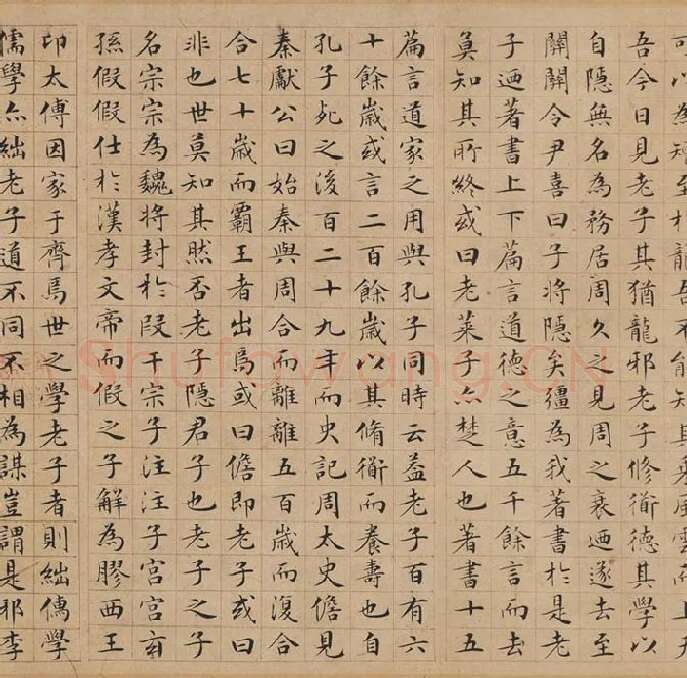 可以為知至於龍吾不能知其乘風雲而上天
吾今日見老子其猶龍邪老子修衜德其學以
自隱無名為務居周久之見周之衰迺遂去至
關關令尹喜曰子將隱矣彊為我著書於是老
子迺著書上下萹言道德之意五千餘言而去
莫知其所終或曰老萊子亦楚人也著書十五
萹言道家之用與孔子同時云蓋老子百有六
十餘歲或言二百餘歲以其脩衜而養壽也自
孔子死之後百二十九年而史記周太史儋見
秦獻公曰始秦與周合而離離五百歲而復合
合七十歲而霸王者出焉或曰儋即老子或曰
非也世莫知其然否老子隱君子也老子之子
名宗宗為魏將封於段干宗子注注子宮宮玄
孫假假仕於漢孝文帝而假之子解為膠西王
卬太傅因家于齊焉世之學老子者則絀儒學
儒學亦絀老子道不同不相為謀豈謂是邪李
Shufawang.CN